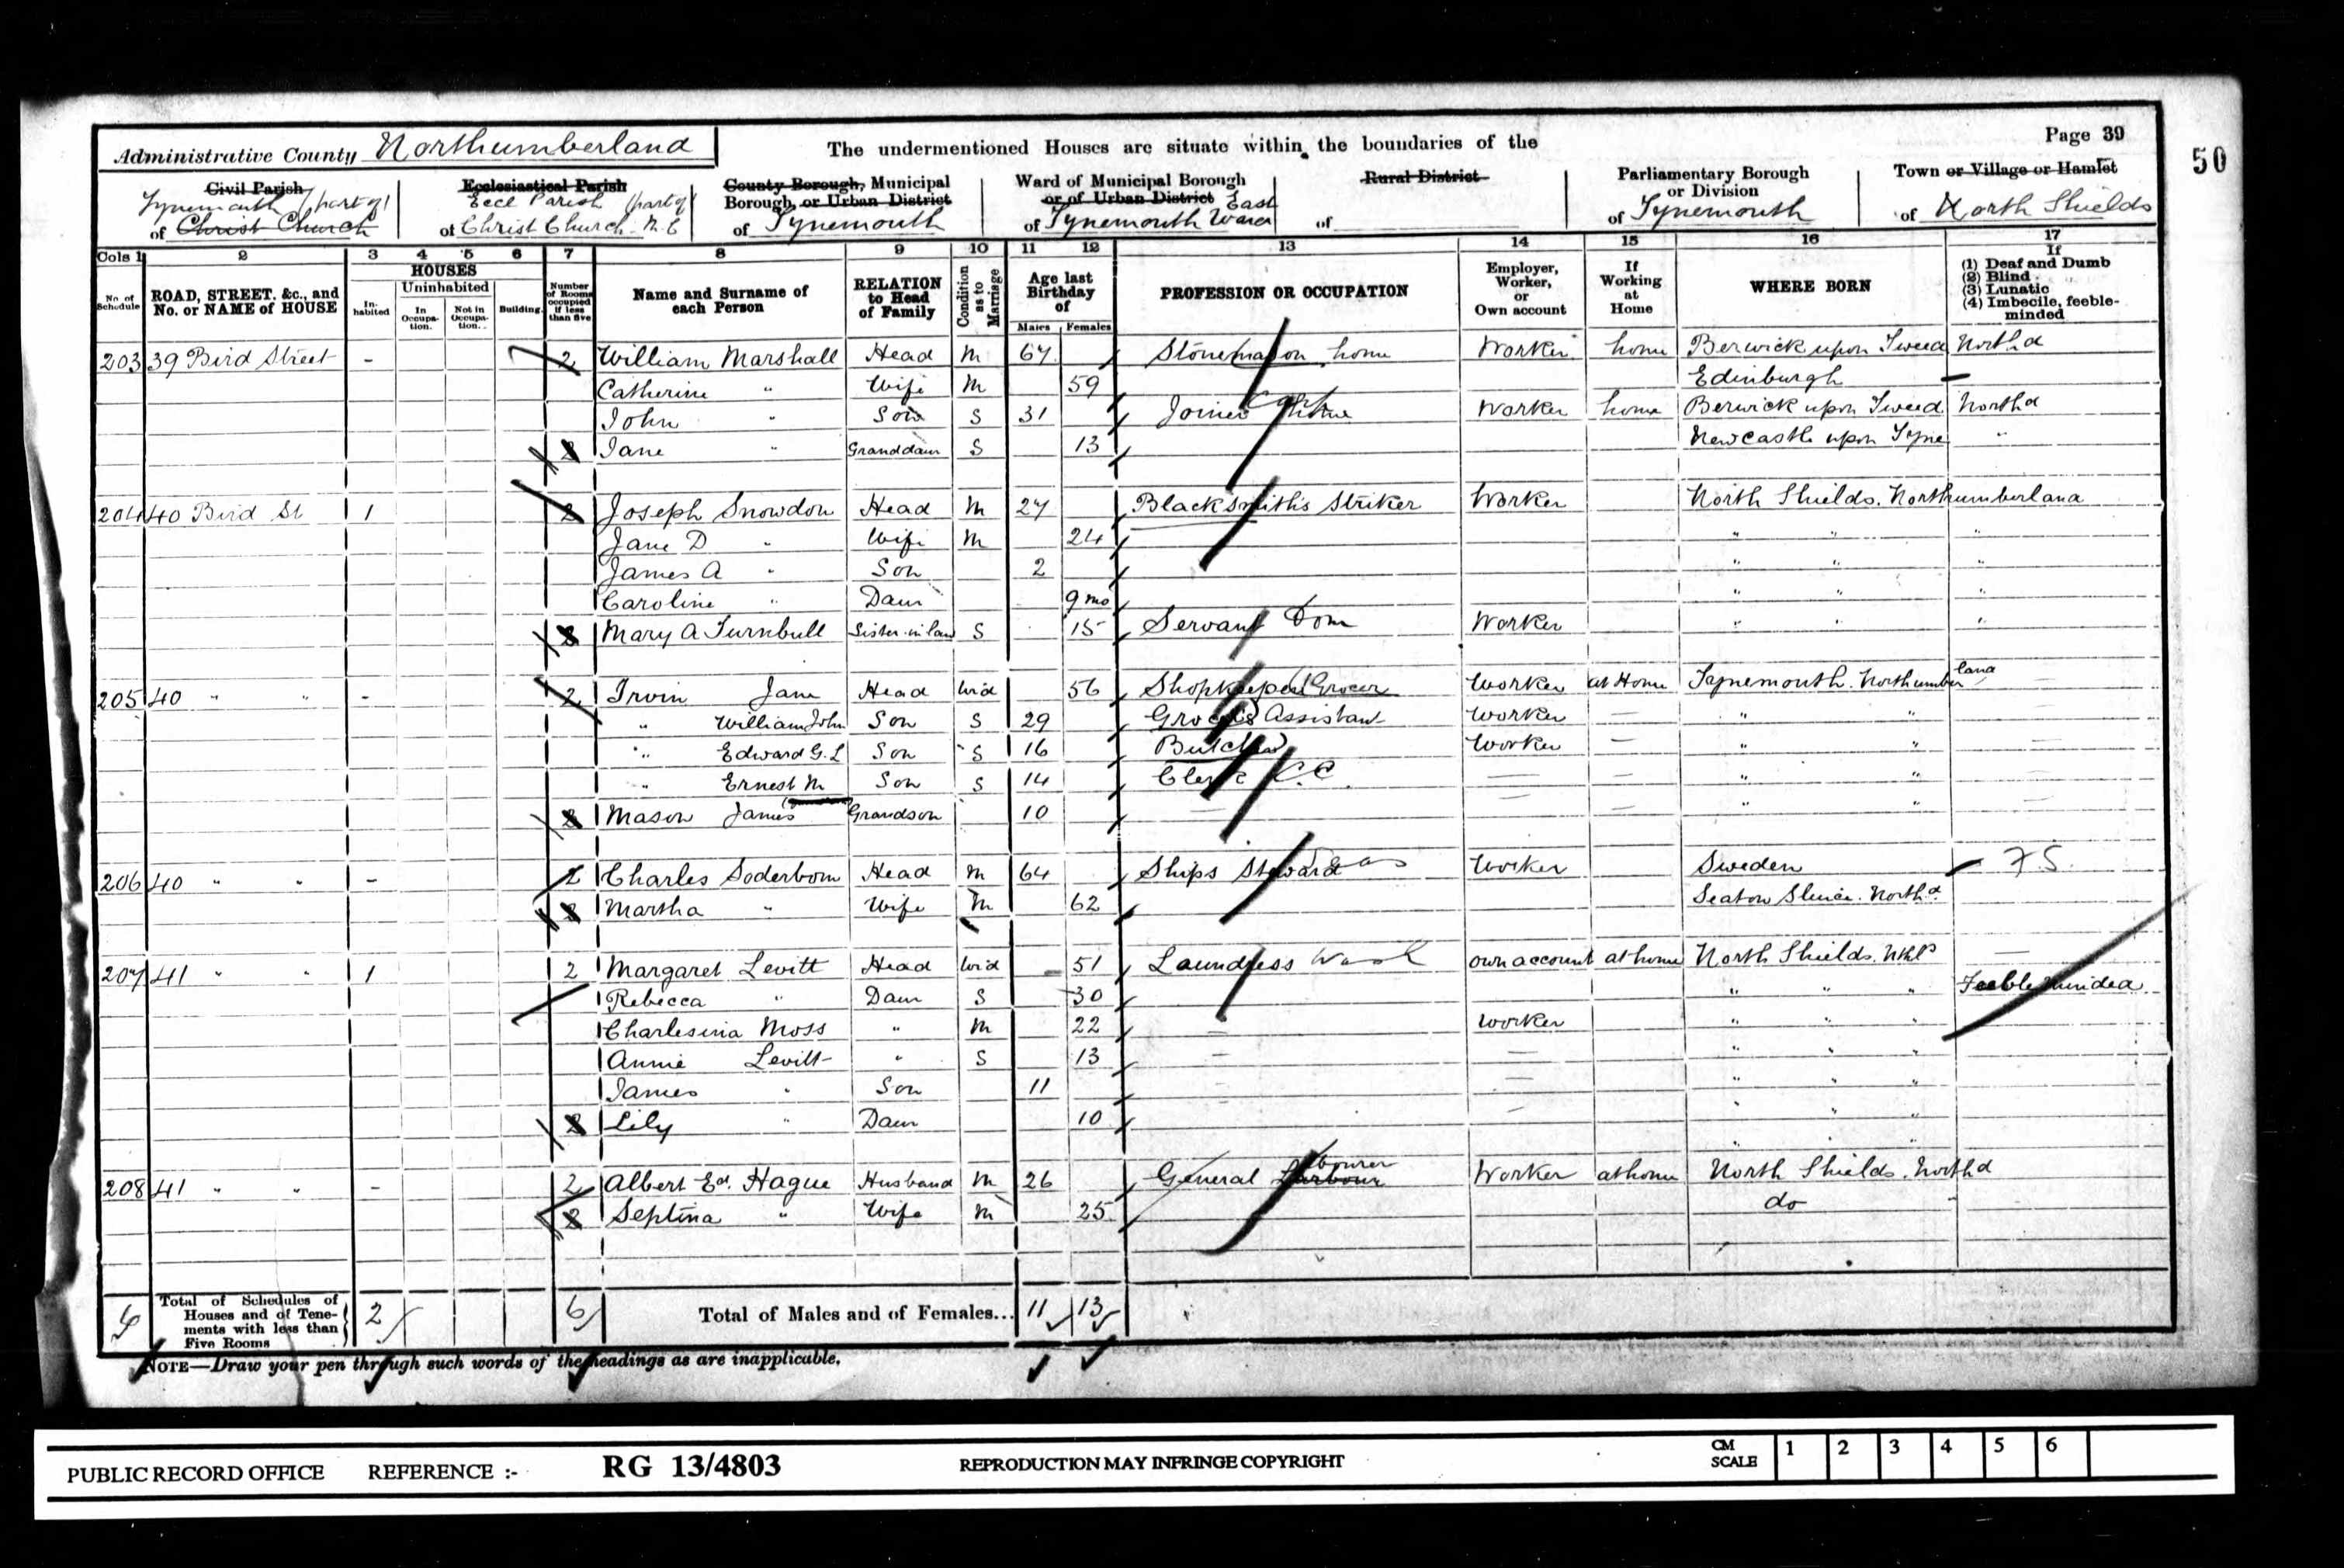 Page 39
50
Administrative County Northumberland
The undermentioned Houses are situate within the boundaries of the
Civil Parish Tynemouth (part of) of Christ Church
Ecclesiastical Parish Eccl Parish (part of) of Christ Church N.E
County Borough, Municipal Borough, or Urban District of Tynemouth
Ward of Municipal Borough or of Urban District of Tynemouth East Ward
Rural District of
Parliamentary Borough or Division of Tynemouth
Town or Village or Hamlet of North Shields
Cols 1 2 3 4 5 6 7 8 9 10 11 12 13 14 15 16 17
No. of Schedule
ROAD, STREET, &c., and No. or NAME of HOUSE
HOUSES
Inhabited
Uninhabited
In Occupation.
Not in Occupation.
Building.
Number of Rooms occupied if less than five
Name and Surname of each Person
RELATION to Head of Family
Condition as to Marriage
Age last Birthday of
Males Females
PROFESSION OR OCCUPATION
Employer, Worker, or Own account
If Working at Home
WHERE BORN
If (1) Deaf and Dumb (2) Blind (3) Lunatic (4) Imbecile, feeble-minded
203 39 Bird Street - 2 William Marshall Head M 67 Stonemason home Worker home Berwick upon Tweed North'd
Catherine " Wife M 59 Edinburgh
John " Son S 31 Joiner home Worker home Berwick upon Tweed North'd
Jane " Granddaur S 13 Newcastle upon Tyne "
204 40 Bird St 1 2 Joseph Snowdon Head M 27 Blacksmith's Striker Worker North Shields. Northumberland
Jane D " Wife M 24 " " "
James A " Son 2 " " "
Caroline " Daur 9 mo " " "
Mary A Turnbull Sister-in-law S 15 Servant Dom Worker " " "
205 40 " " - 2 Irvin Jane Head Wid 56 Shopkeeper (Grocer Worker at Home Tynemouth. Northumberland
" William John Son S 29 Grocer's Assistant Worker - " "
" Edward G. L Son S 16 Butcher Worker - " "
" Ernest M Son S 14 Clerk - - " "
Mason James Grandson 10 - - - " "
206 40 " " - 2 Charles Soderbom Head M 64 Ships Steward Worker Sweden F S
Martha " Wife M 62 Seaton Sluice. North'd.
207 41 " " 1 2 Margaret Levitt Head Wid 51 Laundress Wash own account at home North Shields. Nhld -
Rebecca " Daur S 30 " " " Feeble minded
Charlesina Moss " M 22 - Worker " " "
Annie Levitt " S 13 - - " " "
James " Son 11 - " " "
Lily " Daur 10 - " " "
208 41 " " - 2 Albert Ed. Hague Husband M 26 General Labourer Worker at home North Shields. North'd
Septina " Wife M 25 do "
6 Total of Schedules of Houses and of Tenements with less than Five Rooms 2 6 Total of Males and of Females... 11 13
NOTE—Draw your pen through such words of the headings as are inapplicable.
PUBLIC RECORD OFFICE REFERENCE :- RG 13/4803 REPRODUCTION MAY INFRINGE COPYRIGHT CM SCALE 1 2 3 4 5 6